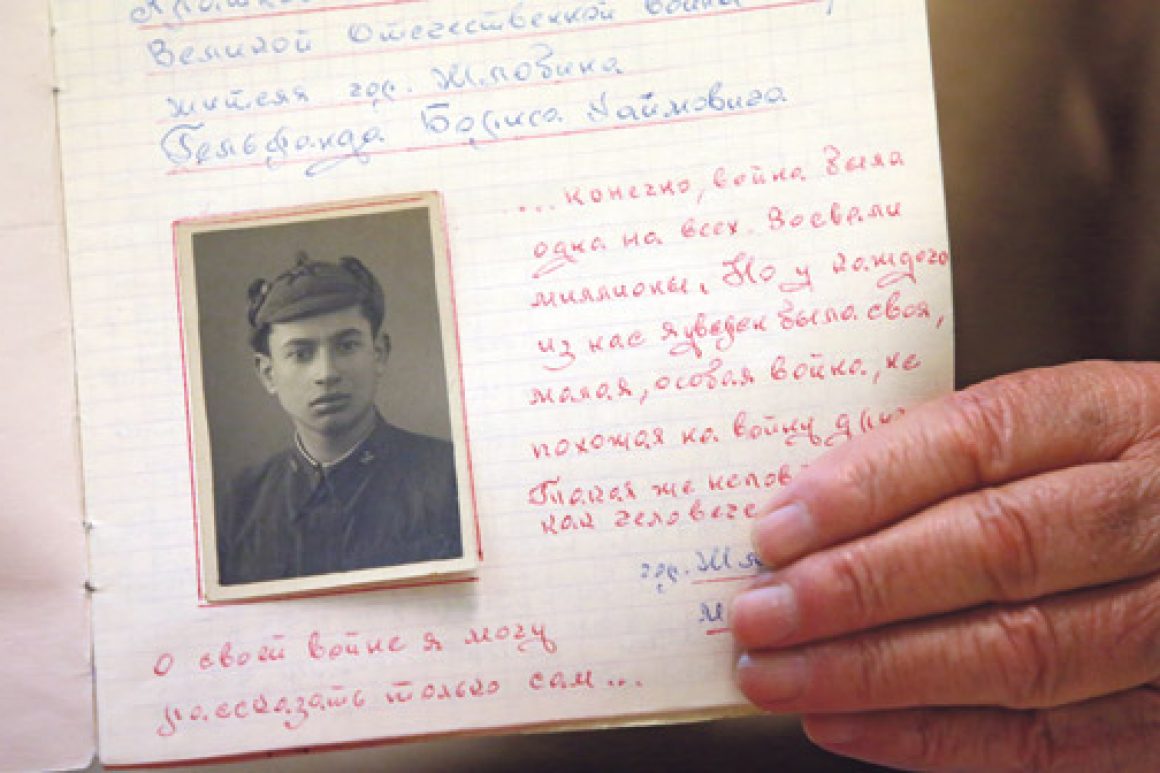 Великой Отечественной войны
жителя гор. Жлобина
Гельфанда Бориса Хаймовича
.... конечно, война была
одна на всех. Воевали
миллионы. Но у каждого
из нас я уверен была своя,
малая, особая война, не
похожая на войну
Такая же непов
как челове
гор. Жл
м
О своей войне я могу
рассказать только сам...